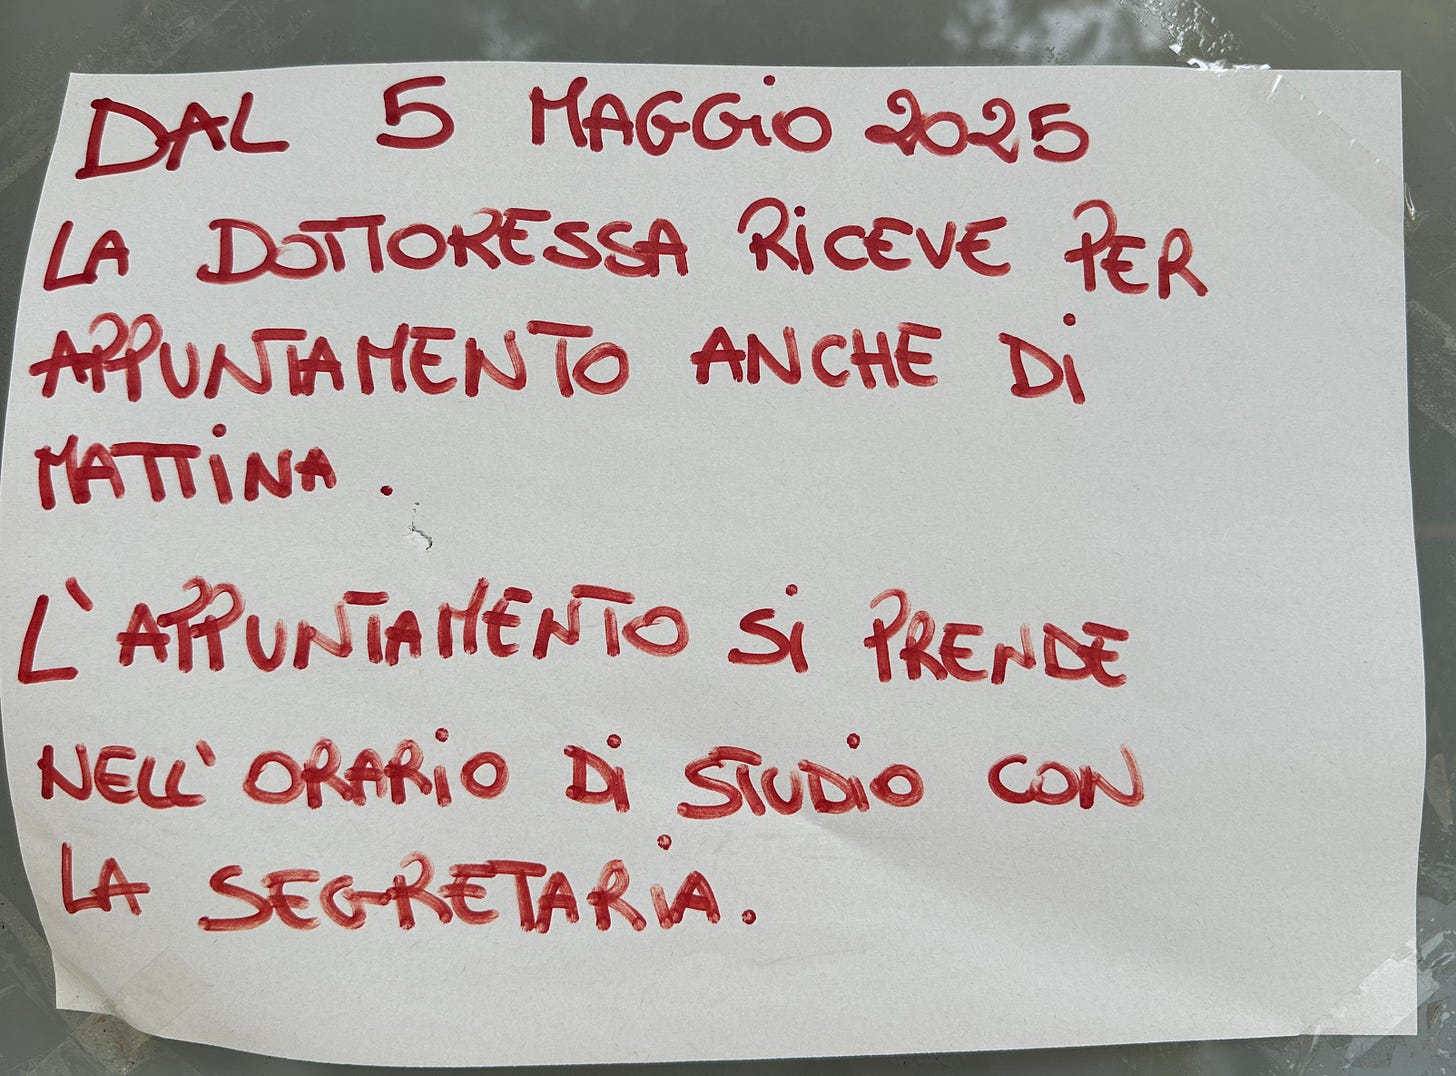 DAL 5 MAGGiO 2025
LA DOTTORESSA RiCEVE PER
APPUNTAMENTO ANCHE Di
MATTiNA.
L'APPUNTAMENTO Si PRENDE
NELL'ORARiO Di STUDiO CON
LA SEGRETARiA.